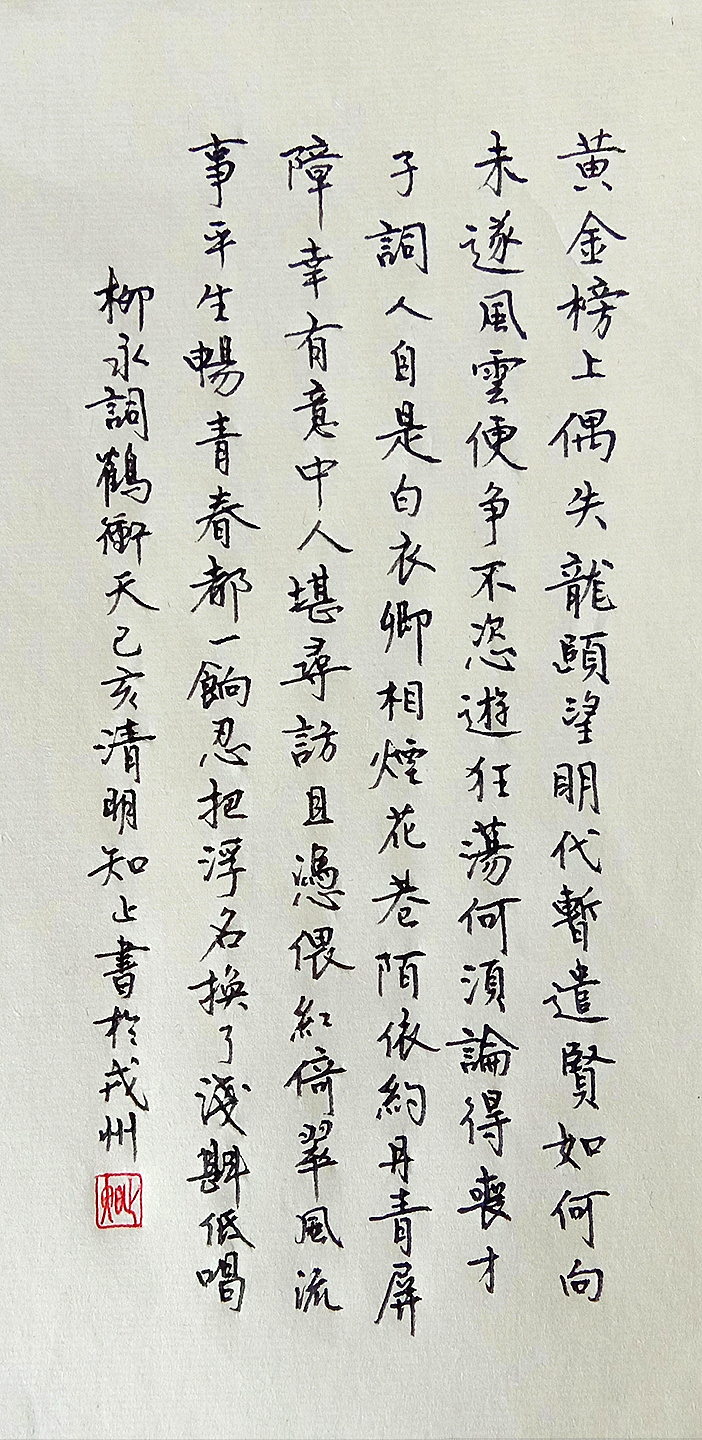 黄金榜上偶失龍頭望明代暫遺賢如何向
未遂風雲便争不恣遊狂蕩何須論得喪才
子詞人自是白衣卿相煙花巷陌依約丹青屏
障幸有意中人堪尋訪且憑偎紅倚翠風流
事平生暢青春都一餉忍把浮名換了淺斟低唱
柳永詞鶴衝天己亥清明知止書於戎州